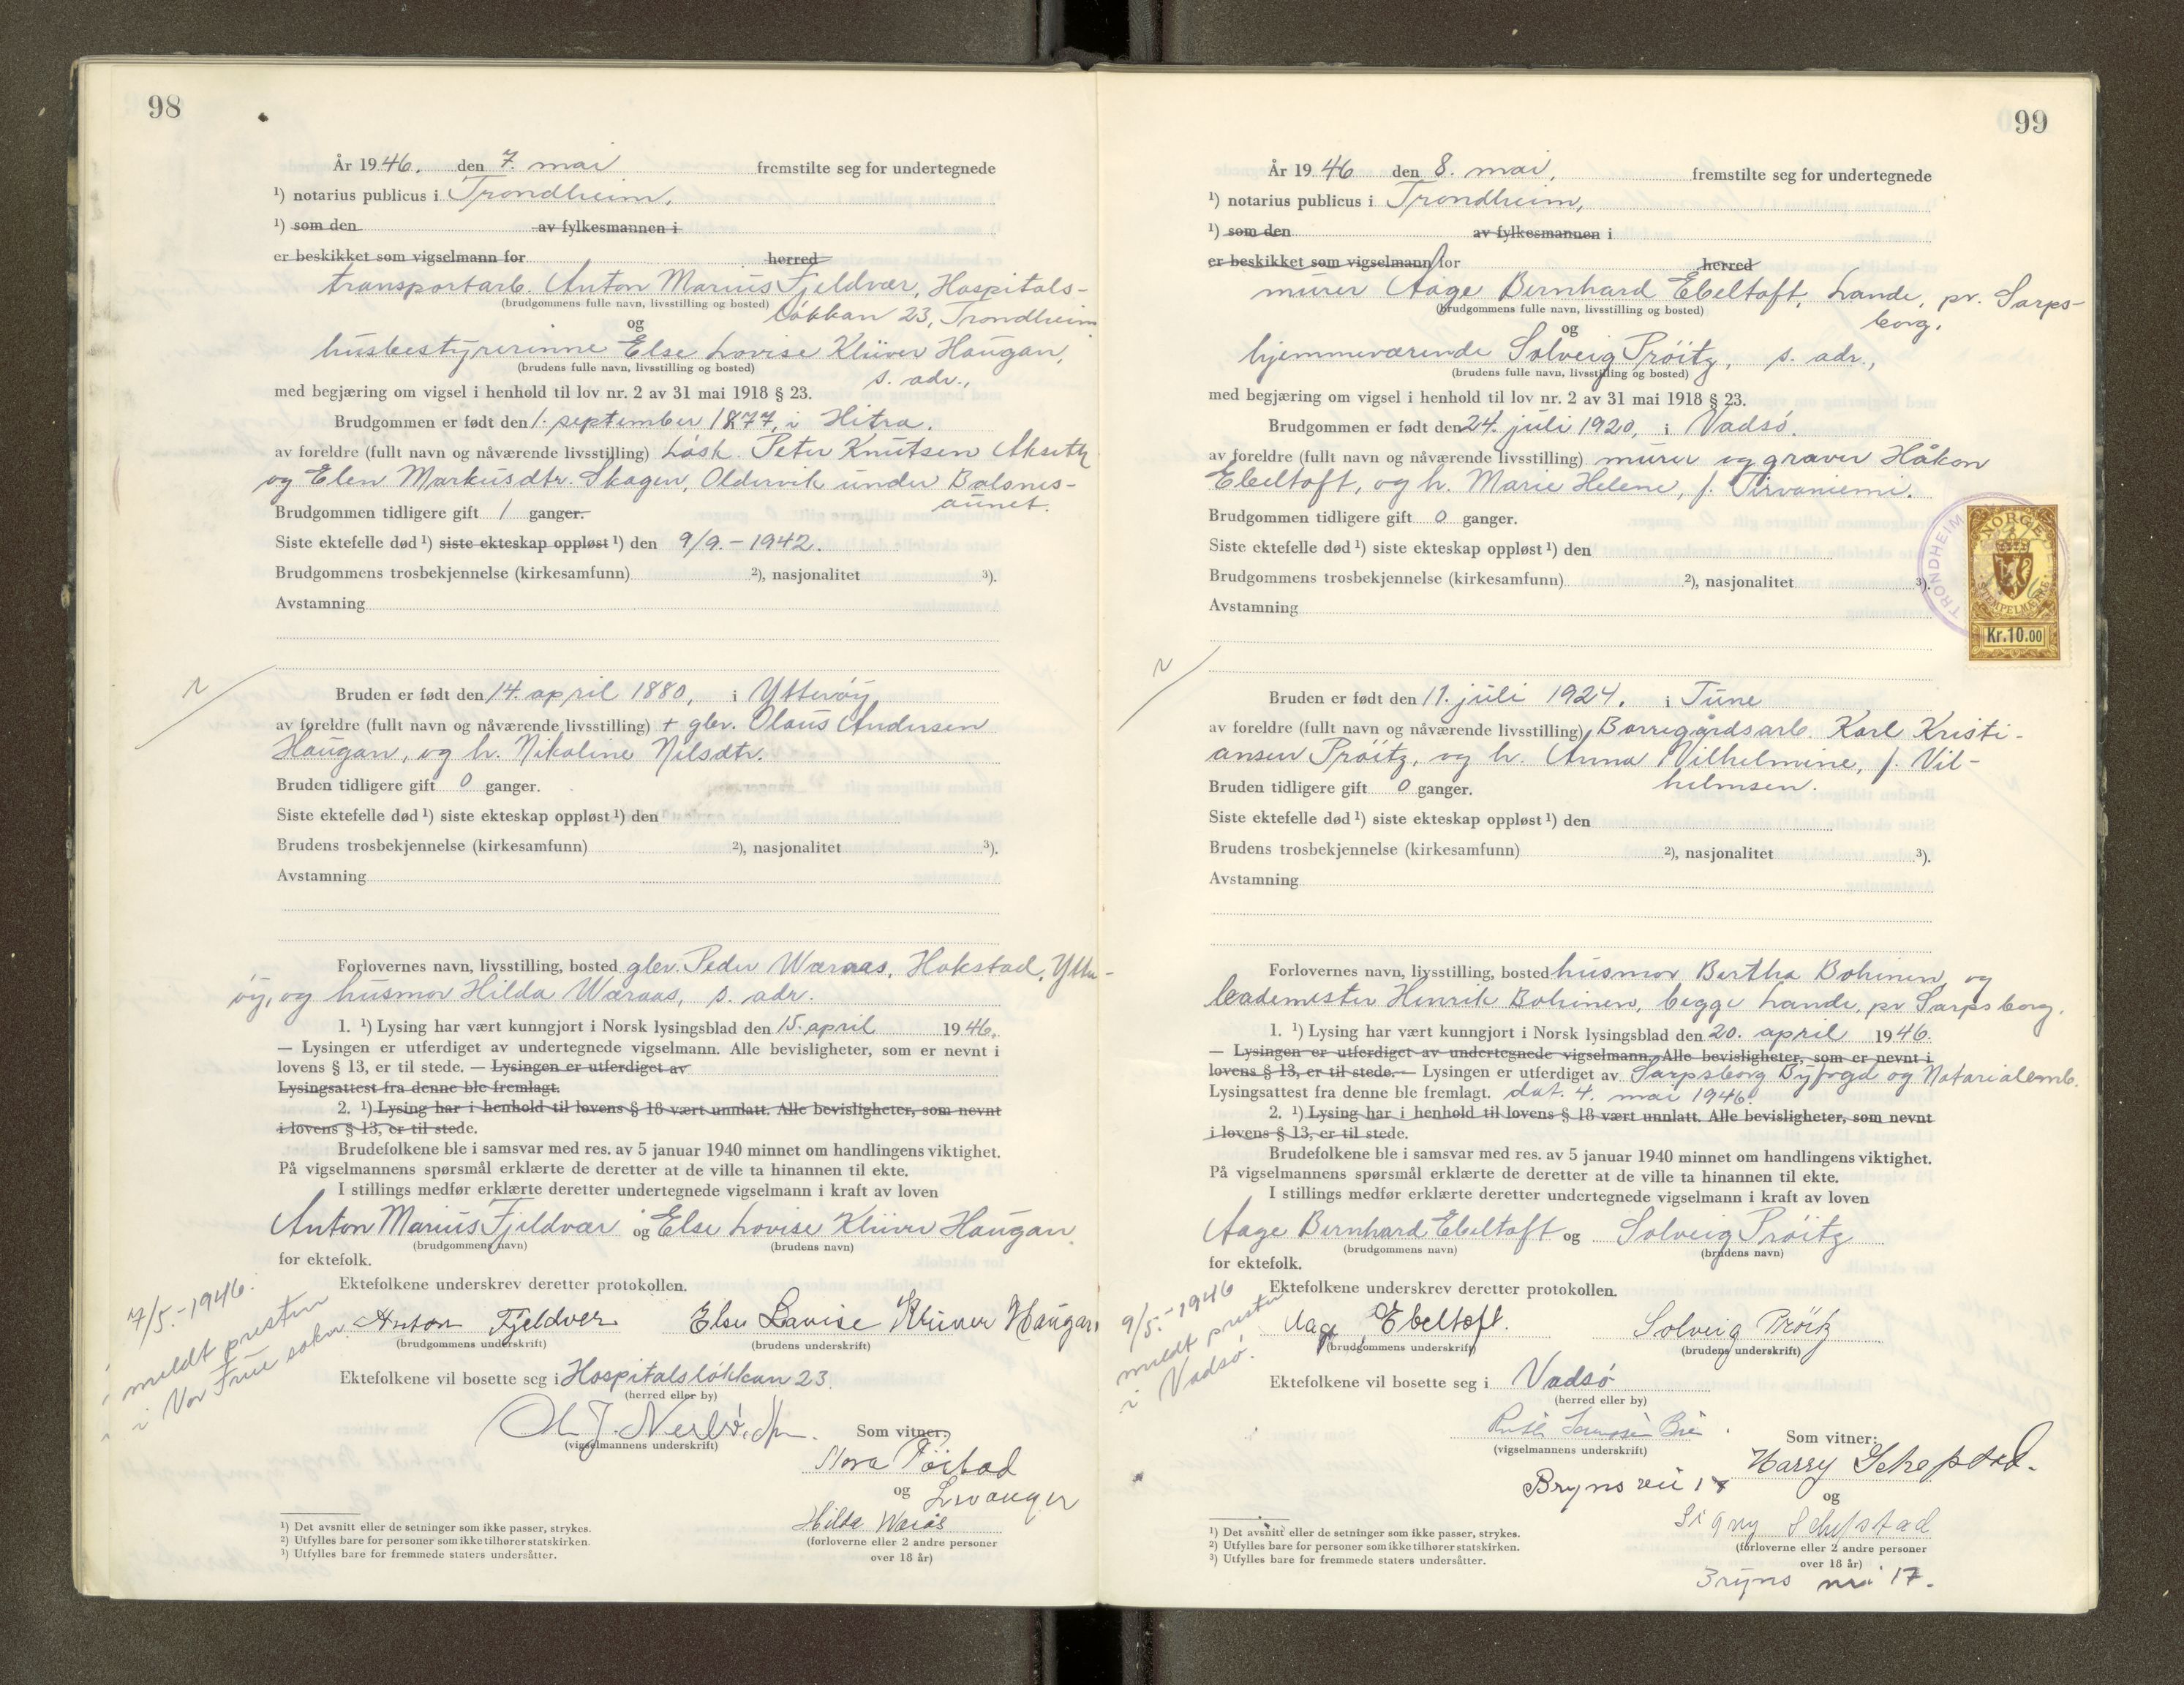 98
År 1946, den 7. mai fremstilte seg for undertegnede
¹) notarius publicus i Trondheim,
¹) som den av fylkesmannen i
er beskikket som vigselmann for herred
transportarb. Anton Marius Fjeldvær, Hospitals-
(brudgommens fulle navn, livsstilling og bosted)
løkkan 23, Trondheim
og
husbestyrerinne Else Lovise Klüver Haugan,
(brudens fulle navn, livsstilling og bosted)
s. adr.,
med begjæring om vigsel i henhold til lov nr. 2 av 31 mai 1918 § 23.
Brudgommen er født den 1. september 1877, i Hitra.
av foreldre (fullt navn og nåværende livsstilling) Løsk. Peter Knutsen Akseth
og Elen Markusdtr. Skagen, Oldervik under Balsnes-
aunet.
Brudgommen tidligere gift 1 ganger.
Siste ektefelle død ¹) siste ekteskap oppløst ¹) den 9/9.-1942.
Brudgommens trosbekjennelse (kirkesamfunn) ²), nasjonalitet ³).
Avstamning
Bruden er født den 14. april 1880, i Ytterøy
av foreldre (fullt navn og nåværende livsstilling) + gbr. Olaus Andersen
Haugan, og h. Nikoline Nilsdtr.
Bruden tidligere gift 0 ganger.
Siste ektefelle død ¹) siste ekteskap oppløst ¹) den
Brudens trosbekjennelse (kirkesamfunn) ²), nasjonalitet ³).
Avstamning
Forlovernes navn, livsstilling, bosted gbr. Peder Wæraas, Hokstad, Ytter-
øy, og husmor Hilda Wæraas, s. adr.
1. ¹) Lysing har vært kunngjort i Norsk lysingsblad den 15. april 1946.
— Lysingen er utferdiget av undertegnede vigselmann. Alle bevisligheter, som er nevnt i
lovens § 13, er til stede. — Lysingen er utferdiget av
Lysingsattest fra denne ble fremlagt.
2. ¹) Lysing har i henhold til lovens § 18 vært unnlatt. Alle bevisligheter, som nevnt
i lovens § 13, er til stede.
Brudefolkene ble i samsvar med res. av 5 januar 1940 minnet om handlingens viktighet.
På vigselmannens spørsmål erklærte de deretter at de ville ta hinannen til ekte.
I stillings medfør erklærte deretter undertegnede vigselmann i kraft av loven
Anton Marius Fjeldvær og Else Lovise Klüver Haugan
(brudgommens navn) (brudens navn)
for ektefolk.
Ektefolkene underskrev deretter protokollen.
7/5.-1946.
meldt presten
i Vor Frue sokn
Anton Fjeldver Else Lovise Klüver Haugan
(brudgommens underskrift) (brudens underskrift)
Ektefolkene vil bosette seg i Hospitalsløkkan 23.
(herred eller by)
(vigselmannens underskrift)
Som vitner:
og Levanger
Hilda
(forloverne eller 2 andre personer
over 18 år)
¹) Det avsnitt eller de setninger som ikke passer, strykes.
²) Utfylles bare for personer som ikke tilhører statskirken.
³) Utfylles bare for fremmede staters undersåtter.
99
År 1946 den 8. mai, fremstilte seg for undertegnede
¹) notarius publicus i Trondheim,
¹) som den av fylkesmannen i
er beskikket som vigselmann for herred
murer Aage Bernhard Ebeltoft, Lande, pr. Sarps-
(brudgommens fulle navn, livsstilling og bosted)
borg.
og
hjemmeværende Solveig Prøitz, s. adr.,
(brudens fulle navn, livsstilling og bosted)
med begjæring om vigsel i henhold til lov nr. 2 av 31 mai 1918 § 23.
Brudgommen er født den 24. juli 1920, i Vadsø.
av foreldre (fullt navn og nåværende livsstilling) murer og graver Håkon
Ebeltoft, og h. Marie Helene, f. Tirvaniemi.
Brudgommen tidligere gift 0 ganger.
Siste ektefelle død ¹) siste ekteskap oppløst ¹) den
Brudgommens trosbekjennelse (kirkesamfunn) ²), nasjonalitet ³).
Avstamning
TRONDHEIM
NORGE
STEMPELMERKE
Kr.10.00
Bruden er født den 11. juli 1924. i Tune
av foreldre (fullt navn og nåværende livsstilling) Borregårdsarb. Karl Kristi-
ansen Prøitz, og h. Anna Vilhelmine, f. Vil-
helmsen.
Bruden tidligere gift 0 ganger.
Siste ektefelle død ¹) siste ekteskap oppløst ¹) den
Brudens trosbekjennelse (kirkesamfunn) ²), nasjonalitet ³).
Avstamning
Forlovernes navn, livsstilling, bosted husmor Bertha Bohinen, og
bademester Henrik Bohinen, begge Lande, pr Sarpsborg.
1. ¹) Lysing har vært kunngjort i Norsk lysingsblad den 20. april 1946.
— Lysingen er utferdiget av undertegnede vigselmann. Alle bevisligheter, som er nevnt i
lovens § 13, er til stede. — Lysingen er utferdiget av Sarpsborg Byfogd og Notarialemb.
Lysingsattest fra denne ble fremlagt. dat. 4. mai 1946.
2. ¹) Lysing har i henhold til lovens § 18 vært unnlatt. Alle bevisligheter, som nevnt
i lovens § 13, er til stede.
Brudefolkene ble i samsvar med res. av 5 januar 1940 minnet om handlingens viktighet.
På vigselmannens spørsmål erklærte de deretter at de ville ta hinannen til ekte.
I stillings medfør erklærte deretter undertegnede vigselmann i kraft av loven
Aage Bernhard Ebeltoft og Solveig Prøitz
(brudgommens navn) (brudens navn)
for ektefolk.
Ektefolkene underskrev deretter protokollen.
9/5.-1946
meldt presten
i Vadsø.
Aage Ebeltoft. Solveig Prøitz
(brudgommens underskrift) (brudens underskrift)
Ektefolkene vil bosette seg i Vadsø
(herred eller by)
(vigselmannens underskrift)
Som vitner:
Harry Schefstad.
Bryns
og
Signy Schefstad
(forloverne eller 2 andre personer
over 18 år)
Bryns 17.
¹) Det avsnitt eller de setninger som ikke passer, strykes.
²) Utfylles bare for personer som ikke tilhører statskirken.
³) Utfylles bare for fremmede staters undersåtter.